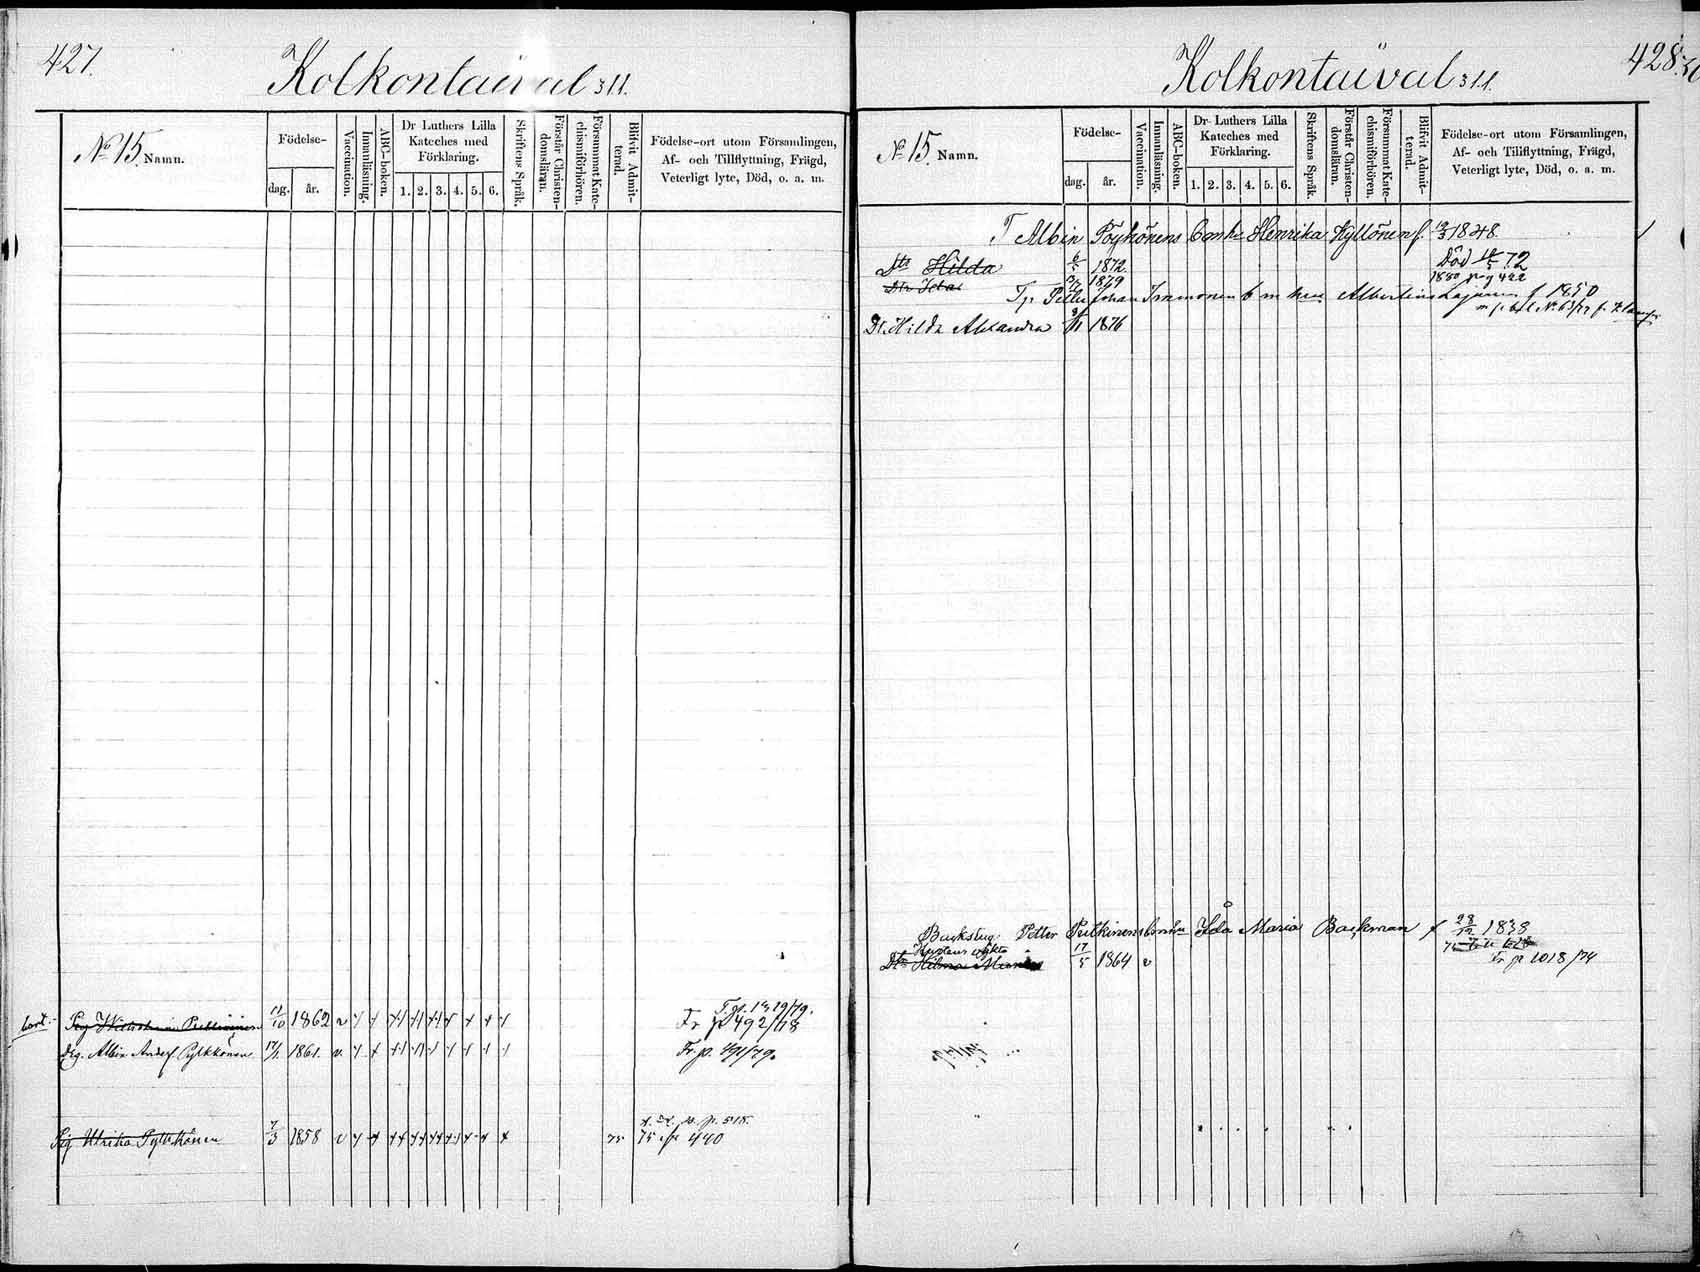 427.
Kolkontaival 311.
No 15. Namn.
Födelse-
dag. år.
Vaccination.
Innanläsning.
ABC-boken.
Dr Luthers Lilla
Kateches med
Förklaring.
1. 2. 3. 4. 5. 6.
Skriftens Språk.
Förstår Christen-
domsläran.
Försummat Kate-
chismiförhören.
Blifvit Admit-
terad.
Födelse-ort utom Församlingen,
Af- och Tillflyttning, Frägd,
Veterligt lyte, Död, o. a. m.
bort.
11/10 1862 v
Fr p 492/78
Drg. Albin Anders Pylkkönen 17/1 1861. v.
Fr. p. 491/79.
Pig Ulrika Pylkkönen 7/3 1858 v
75
75 p 440
428
Kolkontaival 311.
No 15. Namn.
Födelse-
dag. år.
Vaccination.
Innanläsning.
ABC-boken.
Dr Luthers Lilla
Kateches med
Förklaring.
1. 2. 3. 4. 5. 6.
Skriftens Språk.
Förstår Christen-
domsläran.
Försummat Kate-
chismiförhören.
Blifvit Admit-
terad.
Födelse-ort utom Församlingen,
Af- och Tillflyttning, Frägd,
Veterligt lyte, Död, o. a. m.
T Albin Pöykönens Enka Henrika Hyllönen f. 1848.
Dtr Hilda 6/5 1872 Död 72
Dtr Ida 1879 1880 pag 422
Petter Johan Immonen m Albertina f 1850
Dt. Hilda Alexandra 1876
Backstug. Petter Ida Maria Backman f 28/12 1838
Dtr Hilma 17/5 1864 v
Fr p 1018/74